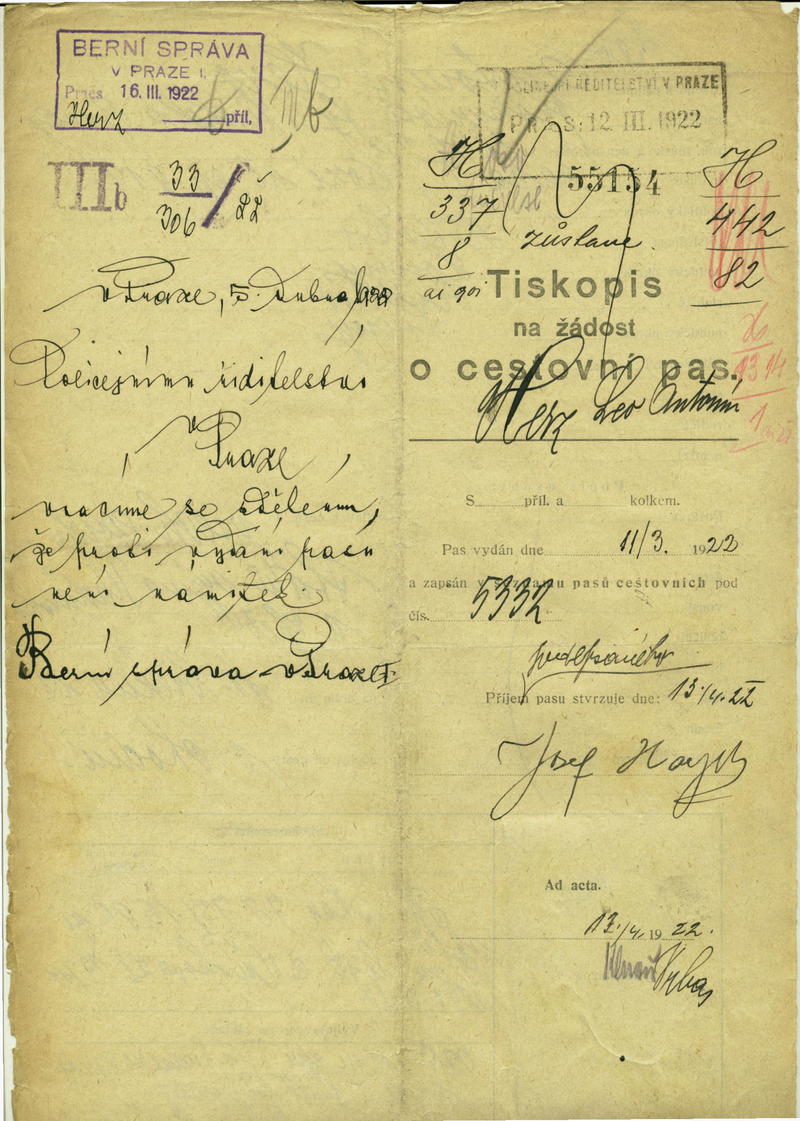 BERNÍ SPRÁVA
V PRAZE I.
Praes 16. III. 1922
Herz příl.
IIIb
IIIb 33
306 / 22
v Praze, 5. dubna 1922
Policejnímu ředitelství
v Praze
vracíme se sdělením,
že proti vydání pasu
není námitek.
Berní správa v Praze I.
ŘEDITELSTVÍ V PRAZE
12. III. 1922
55154
H
337
8
zůstane.
H
442
82
Tiskopis
na žádost
o cestovní pas.
Herz Leo Antonín
S příl. a kolkem.
Pas vydán dne 11/3. 1922
a zapsán v seznamu pasů cestovních pod
čís. 5332
podepsaného
Příjem pasu stvrzuje dne: 13./4. 22
Josef
Ad acta.
13./4. 1922.